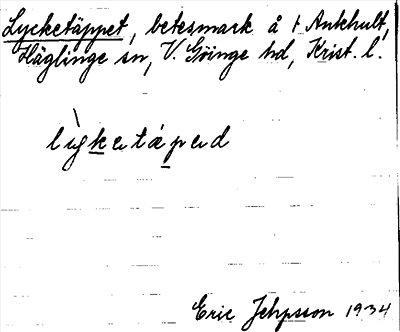 Lycketäppet, betesmark å t Ankhult,
Häglinge sn, V. Göinge hd, Krist. l.
Eric Jehpsson 1934